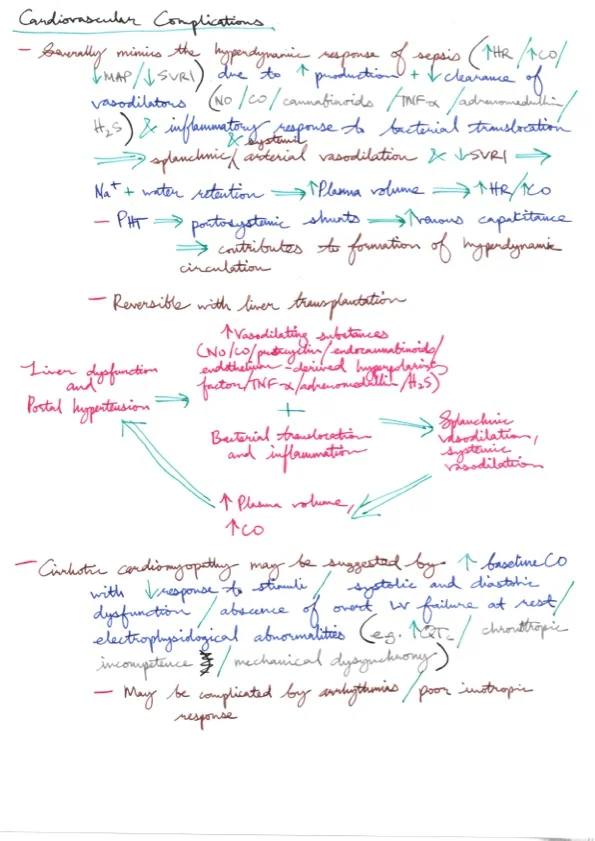 Cardiovascular Complications
— Generally mimics the hyperdynamic response of sepsis (↑HR/↑CO/
↓MAP/↓SVRI) due to ↑ production + ↓ clearance of
vasodilators (NO/CO/cannabinoids/TNF-α/adrenomedullin/
H₂S) & inflammatory response to bacterial translocation
& systemic
⇒ splanchnic/arterial vasodilation & ↓SVRI ⇒
Na⁺ + water retention ⇒ ↑Plasma volume ⇒ ↑HR/↑CO
— PHT ⇒ portosystemic shunts ⇒ ↑venous capatitance
⇒ contributes to formation of hyperdynamic
circulation
— Reversible with liver transplantation
↑Vasodilating substances
(NO/CO/prostacyclin/endocannabinoids/
endothelium-derived hyperpolarising
factor/TNF-α/adrenomedullin/H₂S)
Liver dysfunction
and
Portal hypertension ⇒
+
Bacterial translocation
and inflammation
⇒
Splanchnic
vasodilation,
systemic
vasodilation
↑ Plasma volume,
↑CO
— Cirrhotic cardiomyopathy may be suggested by ↑ baseline CO
with ↓response to stimuli/ systolic and diastolic
dysfunction/absence of overt LV failure at rest/
electrophysiological abnormalities (e.g. ↑QTc/ chronotropic
incompetence/mechanical dysynchrony)
— May be complicated by arrhythmias/poor inotropic
response